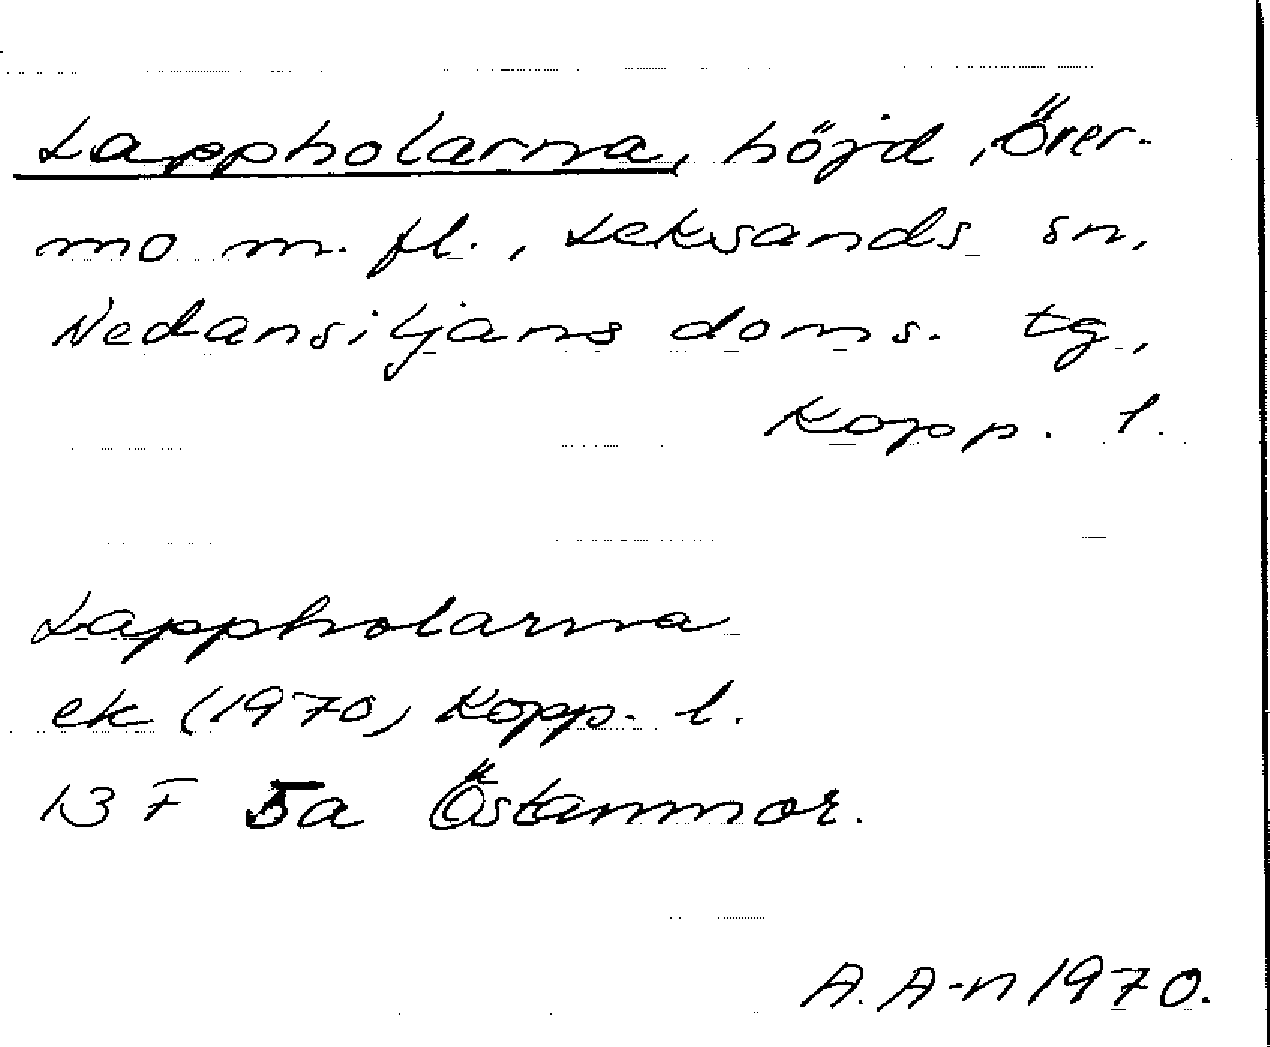 Lappholarna, höjd, Över-
mo m. fl., Leksands sn,
Nedansiljans doms. tg,
Kopp. l.
Lappholarna
ek (1970) Kopp. l.
13 F 5a Östanmor.
A. A-n 1970.